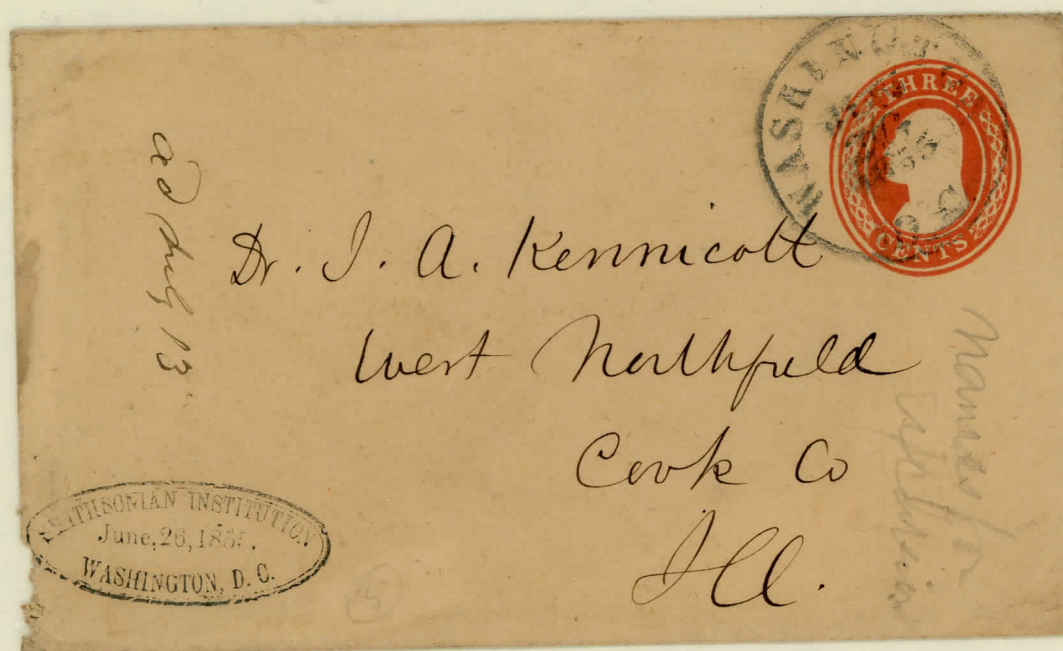 WASHINGTON
THREE
CENTS
Dr. J. A. Kennicott
West Northfield
Cook Co
Ill.
SMITHSONIAN INSTITUTION
June, 26, 1865.
WASHINGTON, D. C.
13